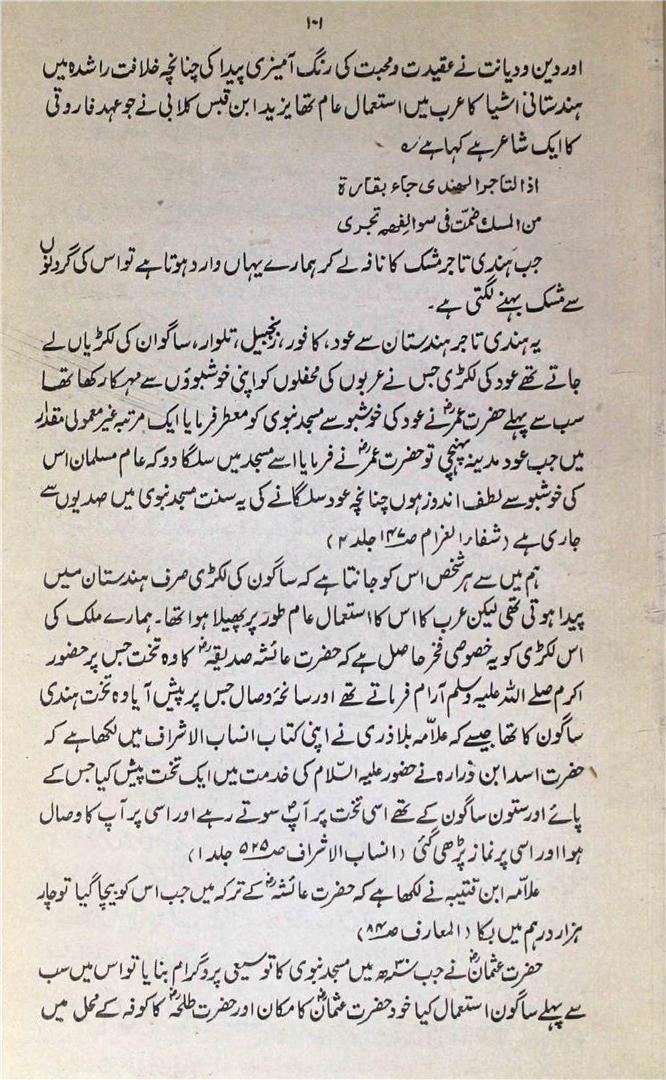 ۱۰۱
اور دین و دیانت نے عقیدت و محبت کی رنگ آمیزی پیدا کی چنانچہ خلافت راشدہ میں
ہندستانی اشیا کا عرب میں استعمال عام تھا یزید ابن قبس کلابی نے جو عہد فاروقی
کا ایک شاعر ہے کہا ہے ؎
اذا التاجر الهندی جاء بفارة
من المسك ضمّت فی سوالفهم تجری
جب ہندی تاجر مشک کا نافہ لے کر ہمارے یہاں وارد ہوتا ہے تو اس کی گردنوں
سے مشک بہنے لگتی ہے۔
یہ ہندی تاجر ہندستان سے عود، کافور، زنجبیل، تلوار، ساگوان کی لکڑیاں لے
جاتے تھے عود کی لکڑی جس نے عربوں کی محفلوں کو اپنی خوشبوؤں سے مہکا رکھا تھا
سب سے پہلے حضرت عمرؓ نے عود کی خوشبو سے مسجد نبوی کو معطر فرمایا ایک مرتبہ غیر معمولی مقدار
میں جب عود مدینہ پہنچی تو حضرت عمرؓ نے فرمایا اسے مسجد میں سلگا دو کہ عام مسلمان اس
کی خوشبو سے لطف اندوز ہوں چنانچہ عود سلگانے کی یہ سنت مسجد نبوی میں صدیوں سے
جاری ہے (شفاء الغرام ص۱۴۷ جلد ۲)
ہم میں سے ہر شخص اس کو جانتا ہے کہ ساگون کی لکڑی صرف ہندستان میں
پیدا ہوتی تھی لیکن عرب کا اس کا استعمال عام طور پر پھیلا ہوا تھا۔ ہمارے ملک کی
اس لکڑی کو یہ خصوصی فخر حاصل ہے کہ حضرت عائشہ صدیقہؓ کا وہ تخت جس پر حضور
اکرم صلے اللہ علیہ وسلم آرام فرماتے تھے اور سانحۂ وصال جس پر پیش آیا وہ تخت ہندی
ساگون کا تھا جیسے کہ علامہ بلاذری نے اپنی کتاب انساب الاشراف میں لکھا ہے کہ
حضرت اسد ابن زرارہ نے حضور علیہ السّلام کی خدمت میں ایک تخت پیش کیا جس کے
پائے اور ستون ساگون کے تھے اسی تخت پر آپؐ سوتے رہے اور اسی پر آپ کا وصال
ہوا اور اسی پر نماز پڑھی گئی (انساب الاشراف ص۵۲۵ جلد ۱)
علامہ ابن قتیبہ نے لکھا ہے کہ حضرت عائشہؓ کے ترکہ میں جب اس کو بیچا گیا تو چار
ہزار درہم میں بکا (المعارف ص۸۴)
حضرت عثمانؓ نے جب ۳۰ھ میں مسجد نبوی کا توسیعی پروگرام بنایا تو اس میں سب
سے پہلے ساگون استعمال کیا خود حضرت عثمانؓ کا مکان اور حضرت طلحہؓ کا کوفہ کے محل میں